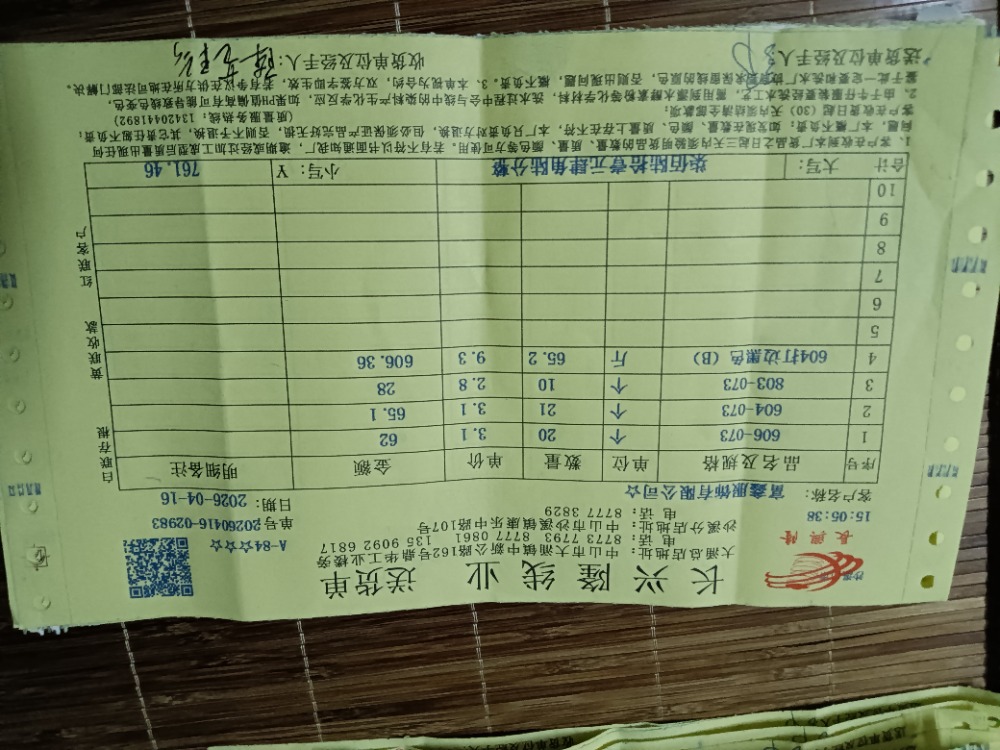 长兴隆线业 送货单
大涌总店地址: 中山市大涌镇中新公路162号鼎华工业楼旁
电话: 8773 7793 8777 0861 135 9092 6817
沙溪分店地址: 中山市沙溪镇康乐中路107号
电话: 8777 3829
长兴隆
A-84☆☆☆☆
单号20260416-02983
15:05:38
客户名称: 富鑫服饰有限公司☆
日期: 2026-04-16
序号 品名及规格 单位 数量 单价 金额 明细备注
1 606-073 个 20 3.1 62
2 604-073 个 21 3.1 65.1
3 803-073 个 10 2.8 28
4 604打边黑色 (B) 斤 65.2 9.3 606.36
5
6
7
8
9
10
合计 大写: 柒佰陆拾壹元肆角陆分整 小写: ¥ 761.46
白联存根
黄联收款
红联客户
1、客户在收到本厂货品之日起三天内须验明货品的数量、质量、颜色等方可使用。若有不符以书面通知我厂,逾期或经过加工成型后质量出现任何
问题,本厂概不负责;如发现在数量、颜色、质量上存在不符,本厂只负责对方退换,但必须保证产品完好无损,否则不予退换,其它责任概不负责;
客户在收货日起(30)天内须结清全部款项; (质量服务热线: 13420441892)
2、由于牛仔服装要经洗水工艺,需用到漂水酵素粉等化学材料,洗水过程中会与线中的染料产生化学反应,如果PH值偏高有可能导致线色变色,
鉴于此一定要和洗水厂协商要求保留线的原色,否则出现问题,概不负责。3、本单视为合约,双方签字即生效,若有争议在供方所在地司法部门解决。
送货单位及经手人:
收货单位及经手人: